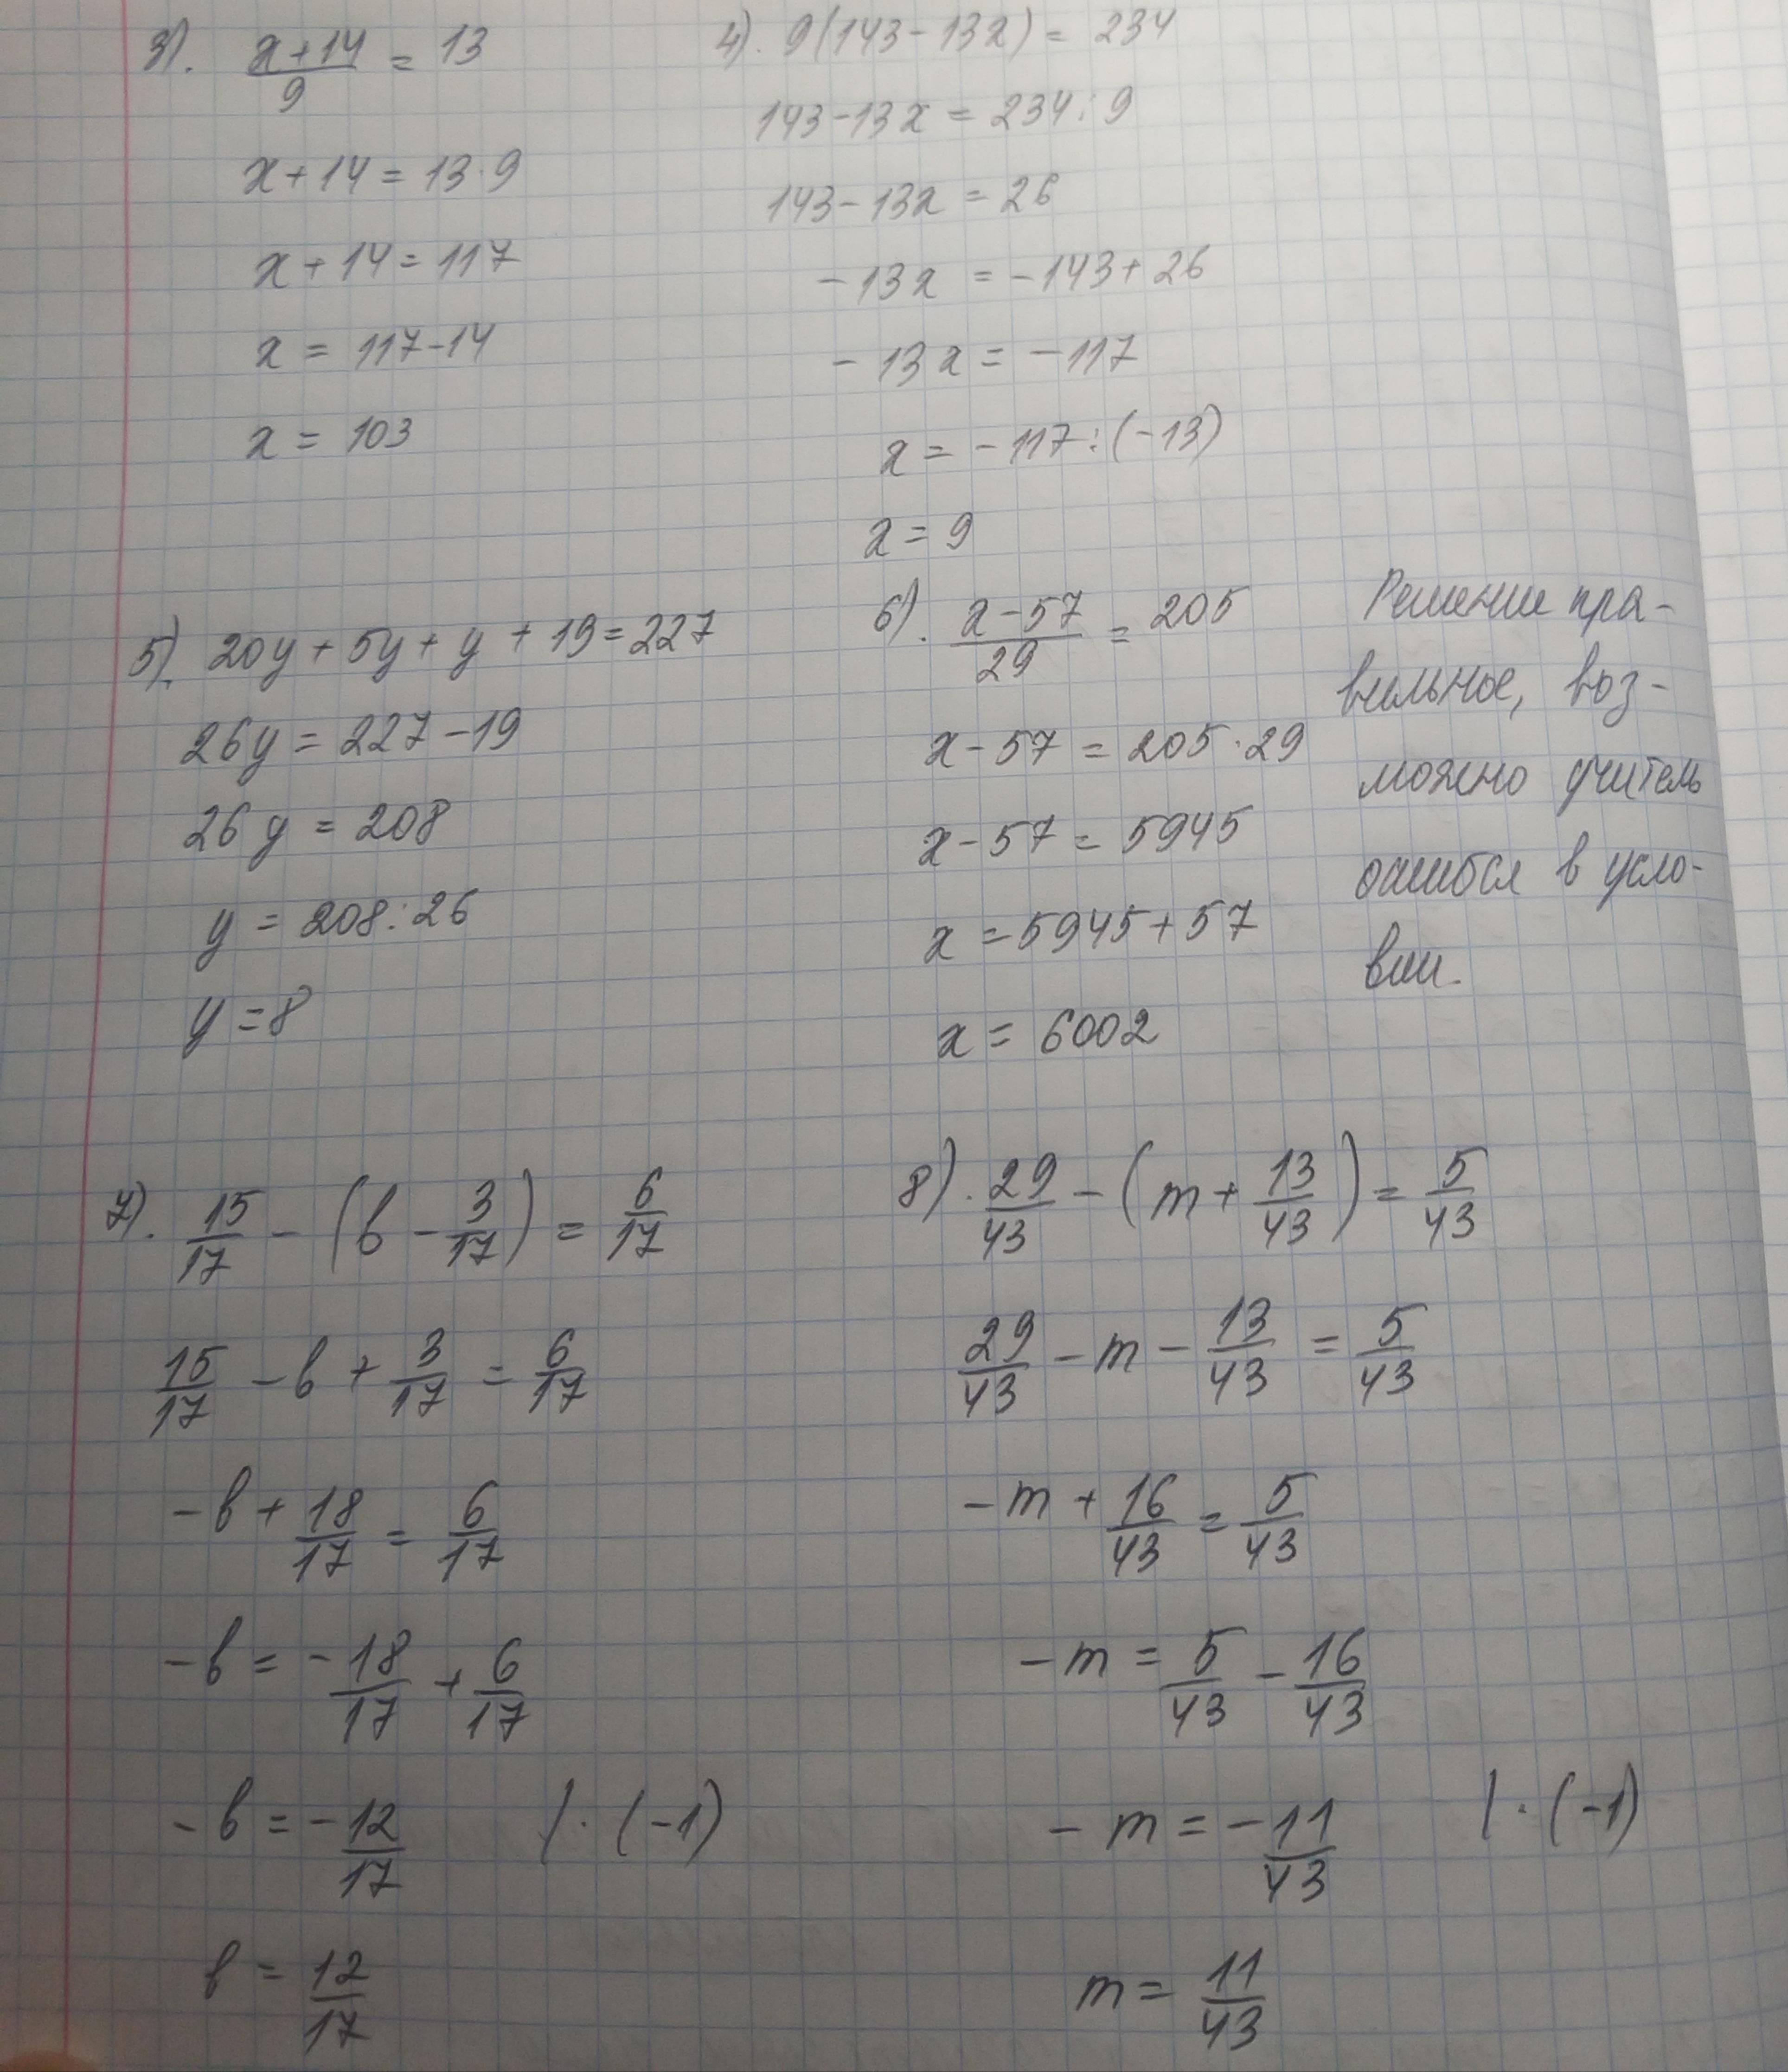 3). x+14/9 = 13
x+14 = 13·9
x+14 = 117
x = 117-14
x = 103
4). 9(143-13x) = 234
143-13x = 234:9
143-13x = 26
-13x = -143+26
-13x = -117
x = -117:(-13)
x = 9
5). 20y + 5y + y + 19 = 227
26y = 227-19
26y = 208
y = 208:26
y = 8
6). x-57/29 = 205
x-57 = 205·29
x-57 = 5945
x = 5945+57
x = 6002
Решение пра-
вильное, воз-
можно учитель
ошибся в усло-
вии.
7). 15/17 - (b - 3/17) = 6/17
15/17 - b + 3/17 = 6/17
-b + 18/17 = 6/17
-b = -18/17 + 6/17
-b = -12/17 |·(-1)
b = 12/17
8). 29/43 - (m + 13/43) = 5/43
29/43 - m - 13/43 = 5/43
-m + 16/43 = 5/43
-m = 5/43 - 16/43
-m = -11/43 |·(-1)
m = 11/43